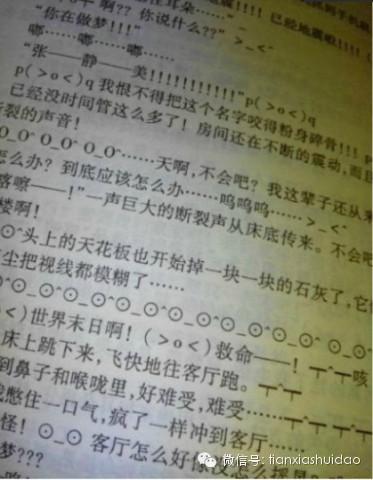 啊?? 你说什么??" >_<
"你在做梦!!!"
嘟……嘟……嘟……
"张——静——美!!!!!!!!!!!!"p(>o<)q
p(>o<)q 我恨不得把这个名字咬得粉身碎骨!!!
已经没时间管这么多了! 房间还在不断的震动, 而且
裂的声音!
O_O^ O_O^ O_O^……天啊, 不会吧? 我这辈子还从来
怎么办? 到底应该怎么办……呜呜呜……>_<
喀嚓——!"一声巨大的断裂声从床底传来。不会吧
楼啊!
⊙^头上的天花板也开始掉一块一块的石灰了, 它
尘把视线都模糊了……
⊙_⊙^⊙_⊙^⊙_⊙^⊙_⊙^⊙_⊙^
<)世界末日啊! (>o<)救命——! ┬^┬咳
床上跳下来, 飞快地往客厅跑。┬^┬
到鼻子和喉咙里, 好难受, 难受……┬^┬
憋住一口气, 疯了一样冲到客厅……
怪! ⊙_⊙ 客厅怎么好
梦???
微信号: tianxiashuidao